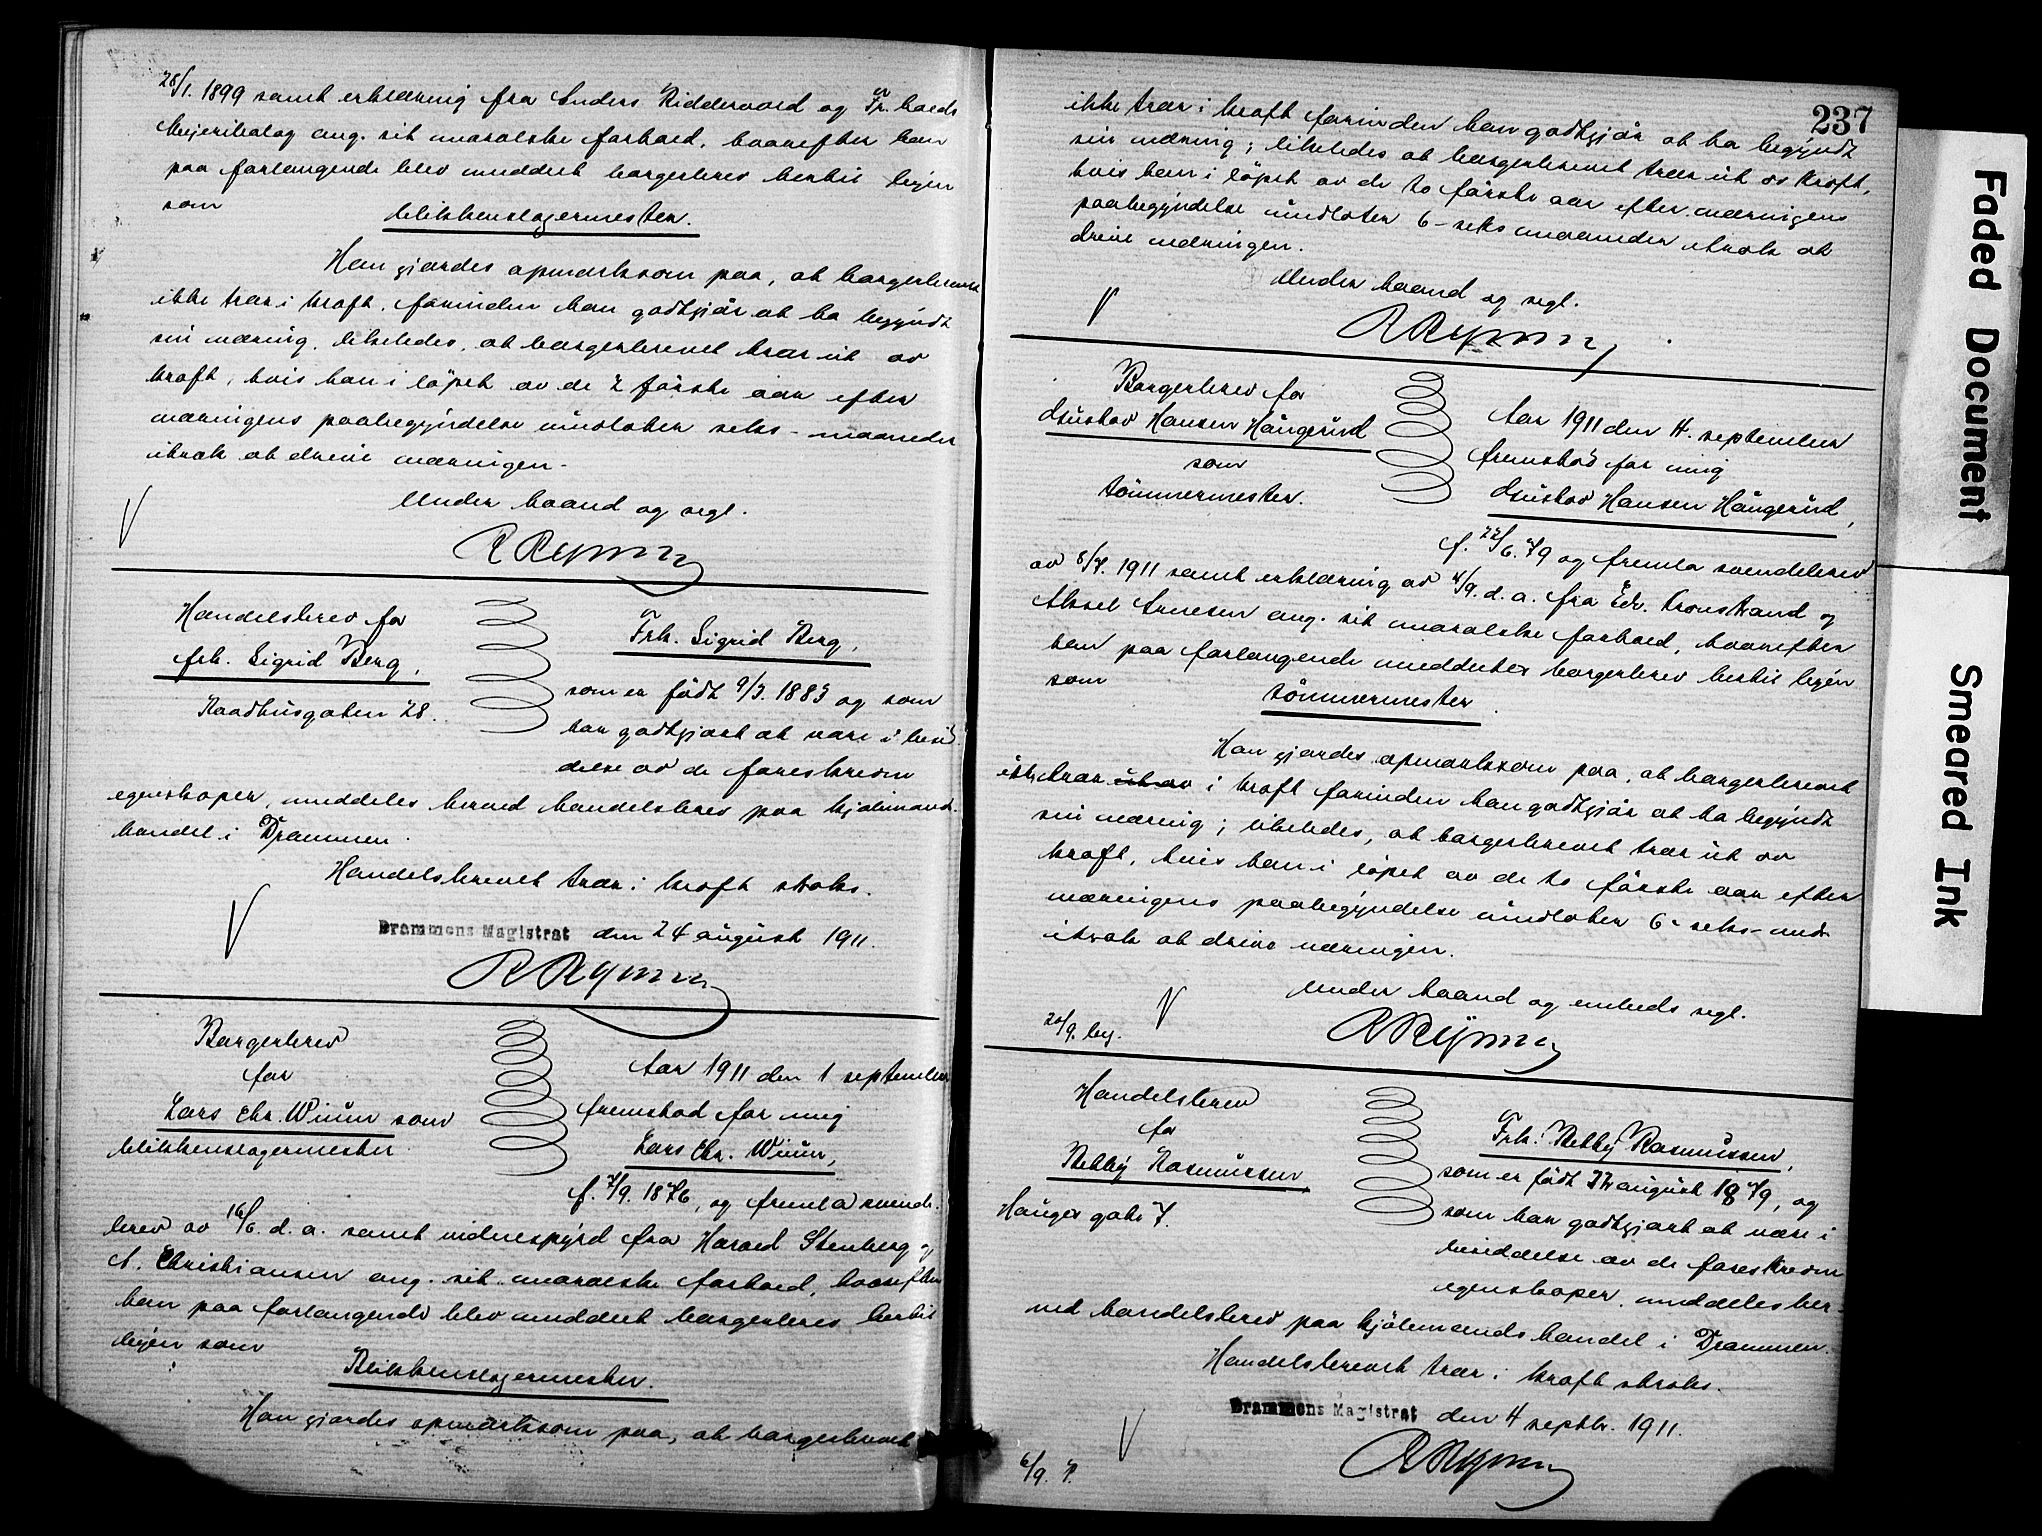 28/1. 1899 samt erklæring fra Anders Riddervold og Fr.
ang. sit moralske forhold, hvorefter han
paa forlangende blev meddelt borgerbrev hertil byen
som
blikkenslagermester.
Han gjordes opmerksom paa, at borgerbrevet
ikke trær i kraft, forinden han godtgjør at ha begyndt
sin næring, likeledes, at borgerbrevet trær ut av
kraft, hvis han i løpet av de 2 første aar efter
næringens paabegyndelse undlater seks - maaneder
itræk at drive næringen.
Under haand og segl.
Handelsbrev for
frk. Sigrid Berg,
Raadhusgaten 28.
Frk. Sigrid Berg,
som er født 9/3. 1883 og som
har godtgjort at være i besid
delse av de foreskrevne
egenskaper, meddeles herved handelsbrev paa kjøbmands
handel i Drammen.
Handelsbrevet trær i kraft straks.
Drammens Magistrat den 24 august 1911.
Borgerbrev
for
Lars Chr. Wiium som
blikkenslagermester
Aar 1911 den 1 september
fremstod for mig
Lars Chr. Wiium,
f. 7/9. 1876, og fremla svende-
brev av 16/6. d. a. samt vidnespyrd fra Harald Stenberg og
A. Christiansen ang. sit moralske forhold, hvorefter
han paa forlangende blev meddelt borgerbrev hertil
byen som
Blikkenslagermester.
Han gjordes opmerksom paa, at borgerbrevet
237
ikke trær i kraft forinden han godtgjør at ha begyndt
sin næring; likeledes at borgerbrevet trær ut av kraft,
hvis han i løpet av de to første aar efter næringens
paabegyndelse undlater 6 - seks maaneder itræk at
drive næringen.
Under haand og segl.
Borgerbrev for
Gustav Hansen Haugerud
som
tømmermester.
Aar 1911 den 4. september
fremstod for mig
Gustav Hansen Haugerud,
f. 22/6. 79 og fremla svendebrev
av 8/7. 1911 samt erklæring av 4/9. d. a. fra Edv. Tronstrand og
Aksel Arnesen ang. sit moralske forhold, hvorefter
han paa forlangende meddeltes borgerbrev hertil byen
som
tømmermester.
Han gjordes opmerksom paa, at borgerbrevet
ikke trær ut av i kraft forinden han godtgjør at ha begyndt
sin næring; likeledes, at borgerbrevet trær ut av
kraft, hvis han i løpet av de to første aar efter
næringens paabegyndelse undlater 6 - seks - mdr
itræk at drive næringen.
Under haand og embeds segl.
20/9. bet.
Handelsbrev
for
Rebby Rasmussen
Hauges gate 7.
Frk. Rebby Rasmussen,
som er født august 1879, og
som har godtgjort at være i
besiddelse av de foreskrevne
egenskaper, meddeles her-
ved handelsbrev paa kjøbmandshandel i Drammen.
Handelsbrevet trær i kraft straks.
Drammens Magistrat den 4 septbr. 1911.
6/9.
Faded Document
Smeared Ink